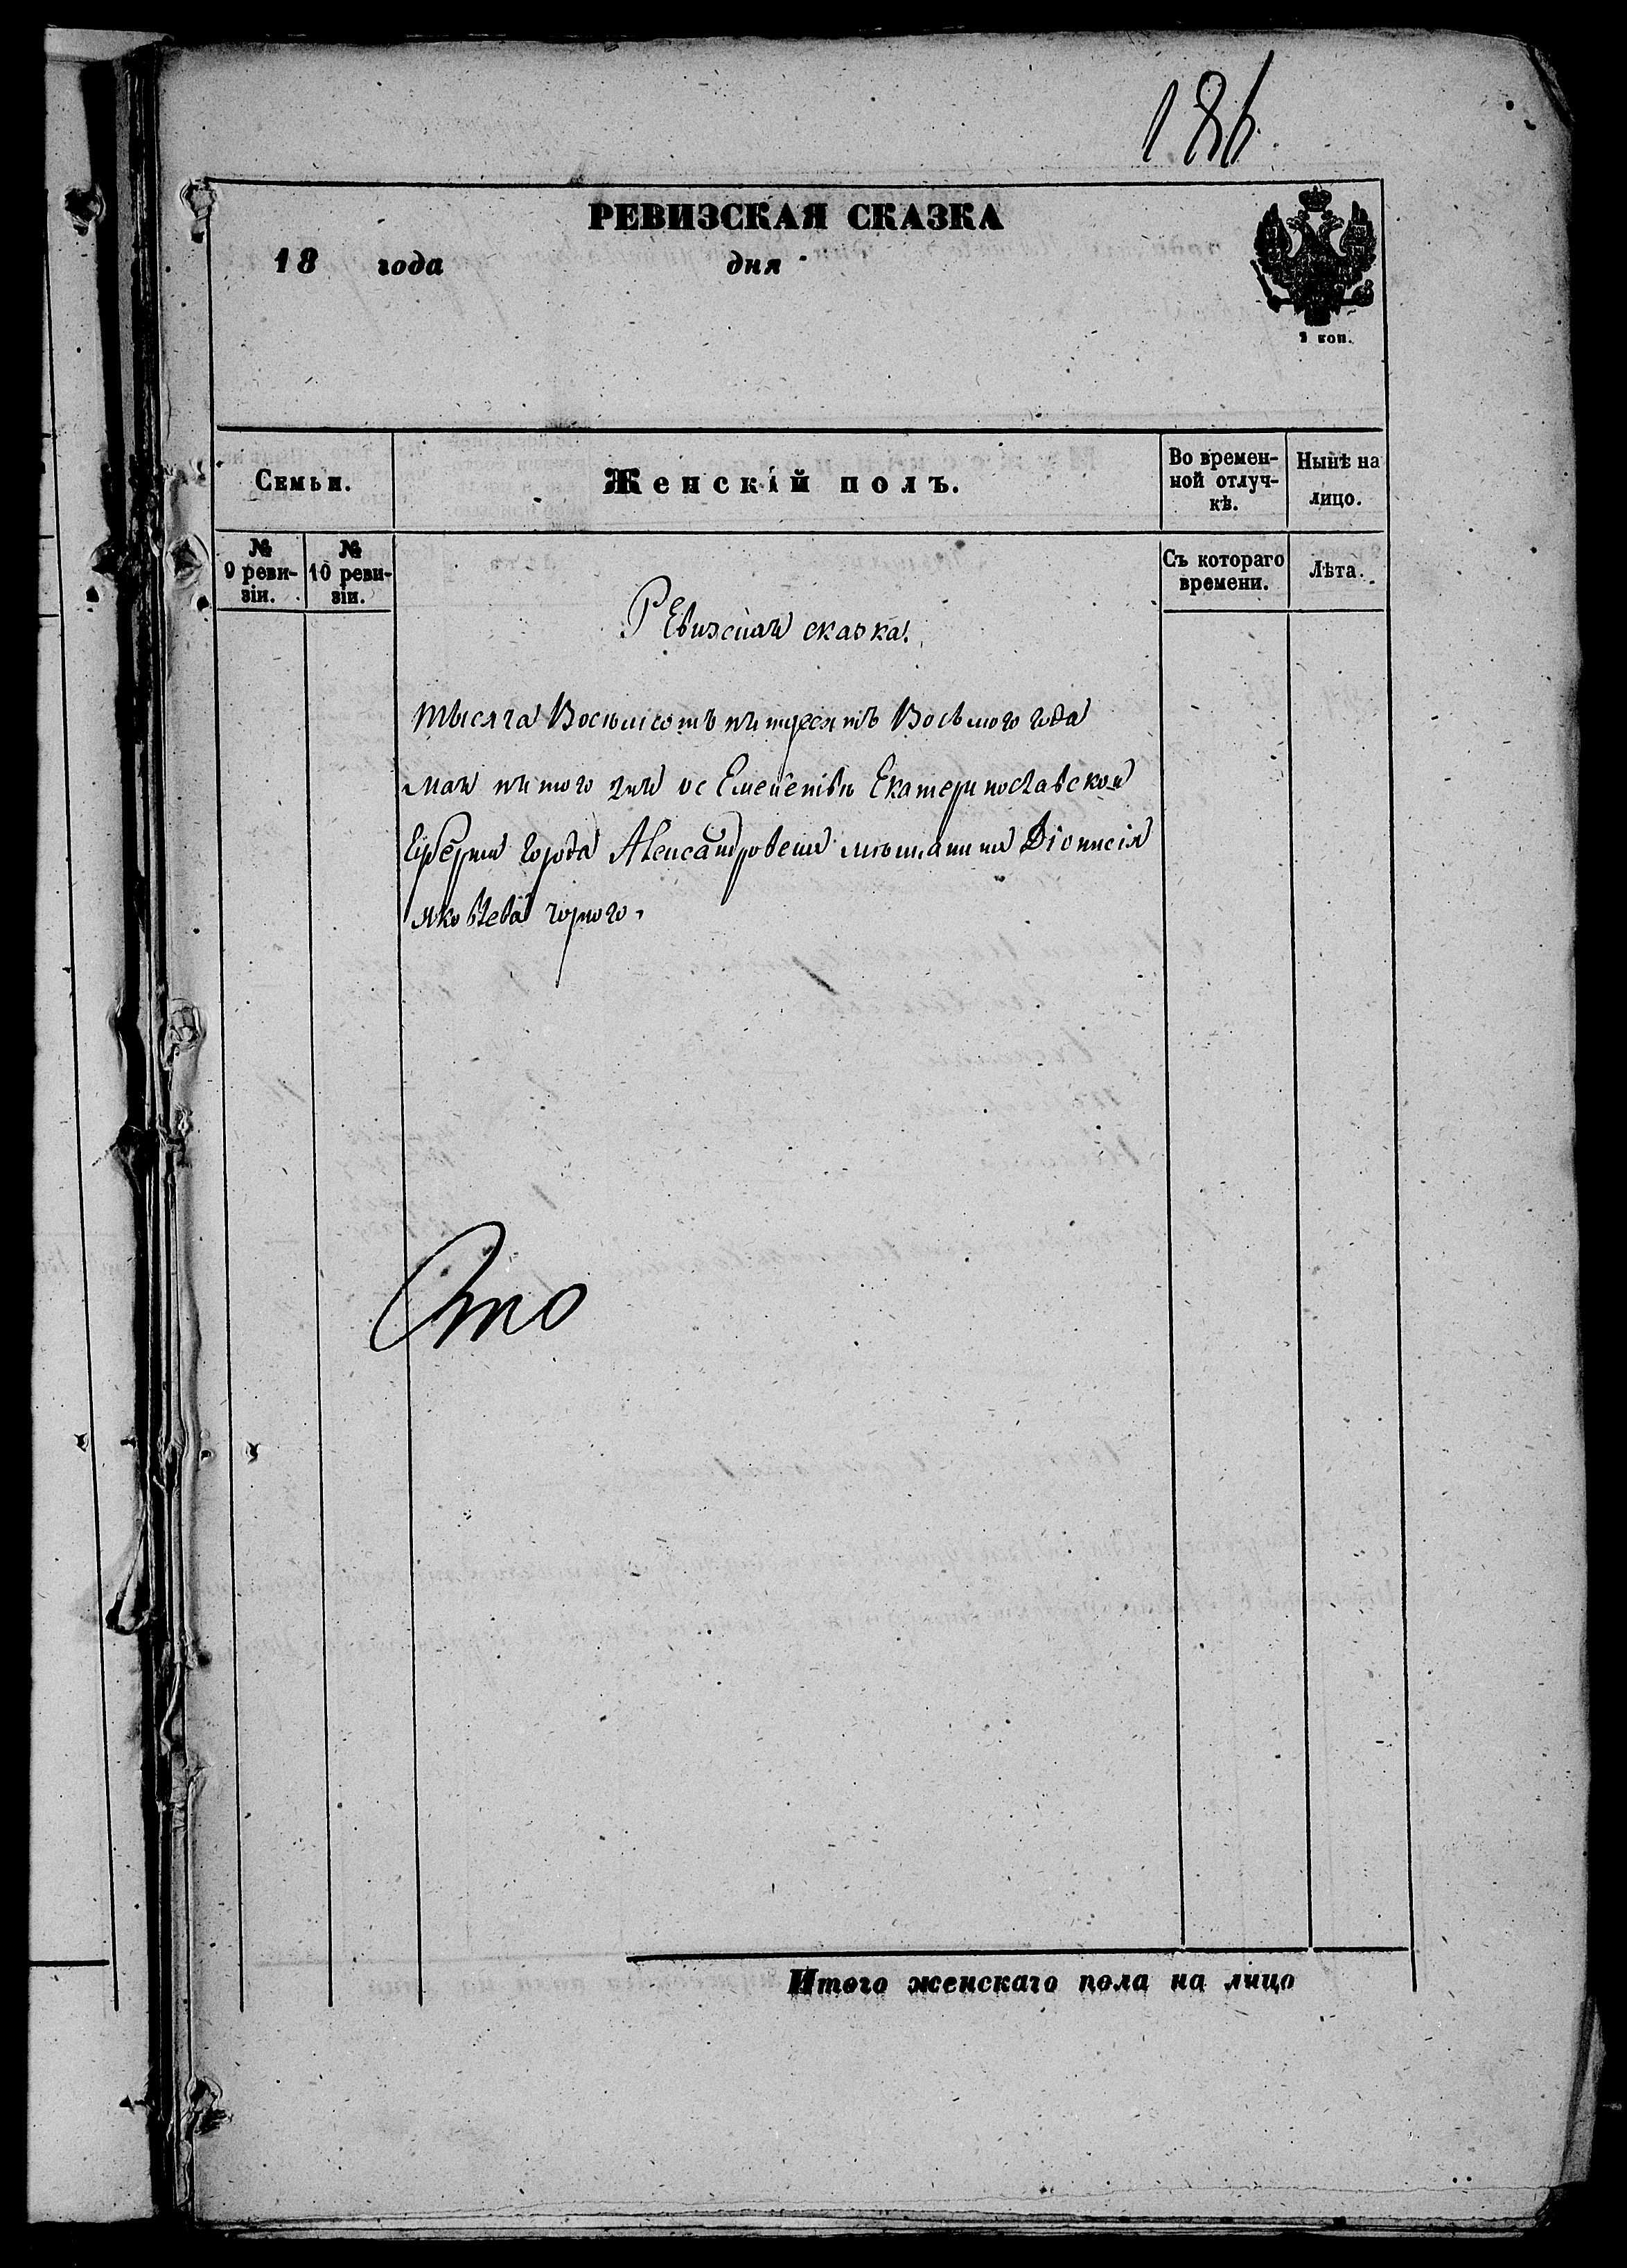 186.
РЕВИЗСКАЯ СКАЗКА
18 года дня
2 коп.
Семьи.
Женскій полъ.
Во времен-
ной отлуч-
кѣ.
Нынѣ на
лицо.
№
9 реви-
зіи.
№
10 реви-
зіи.
Съ котораго
времени.
Лѣта.
Ревизская сказка.
тысяча Восемьсотъ пятдесятъ Восьмого года
мая пятого дня ос Емействѣ Екатеринославской
Губернии города Александровска мѣщанина Діонисія
яковлева чорного.
Сто
Итого женскаго пола на лицо